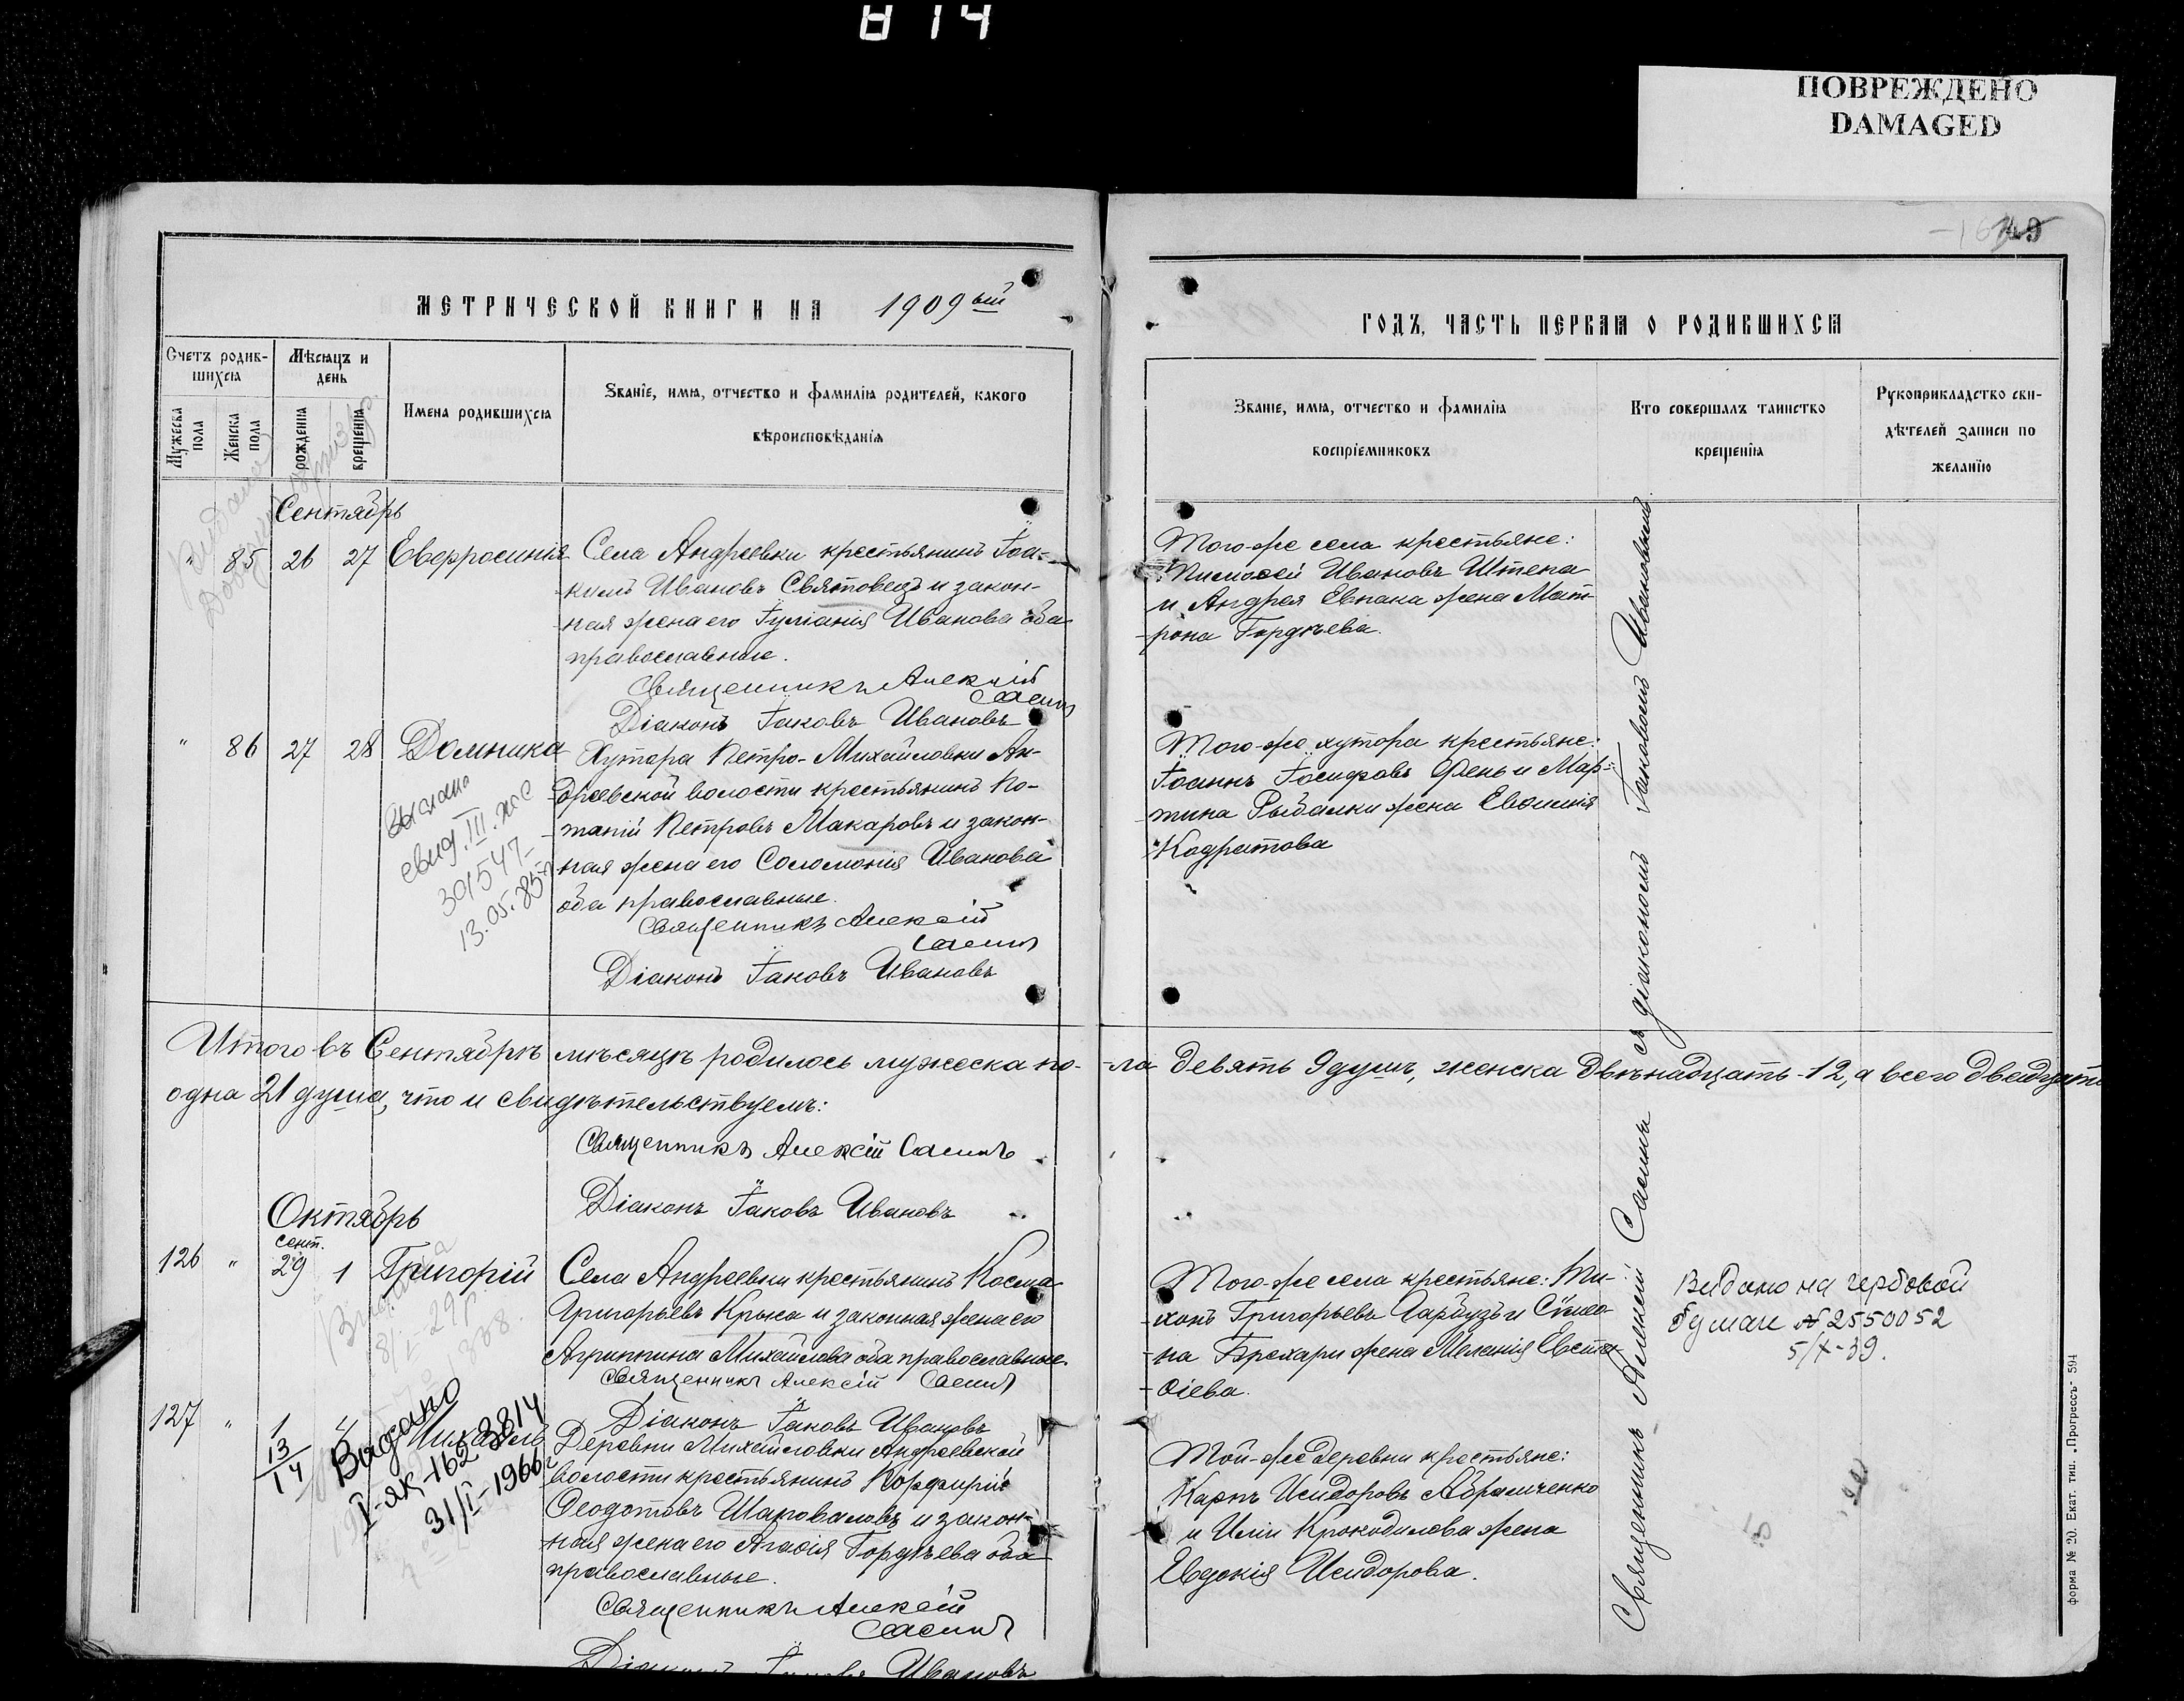 814
ПОВРЕЖДЕНО
DAMAGED
149
МЕТРИЧЕСКОЙ КНИГИ НА 1909ый
ГОДЪ, ЧАСТЬ ПЕРВАЯ О РОДИВШИХСЯ
Счетъ родив-
шихся
Мужеска пола
Женска пола
Мѣсяцъ и
день
рожденія
крещенія
Имена родившихся
Званіе, имя, отчество и фамилія родителей, какого
вѣроисповѣданія
Званіе, имя, отчество и фамилія
воспріемниковъ
Кто совершалъ таинство
крещенія
Рукоприкладство сви-
дѣтелей записи по
желанію
Сентябрь
" 85 26 27 Евфросинія
Села Андреевки крестьянинъ Іоа-
кимъ Ивановъ Святовецъ и закон-
ная жена его Іуліанія Иванова оба
православные.
Священникъ Алексій
Саенъ
Діаконъ Іаковъ Ивановъ
Того-же села крестьяне:
Ивановъ Штепа
и Андрея Евпака жена Мат-
рона Гордѣева.
" 86 27 28 Домника
выслано
свид. III
301547
13.05.85
Хутора Петро-Михайловки Ан-
дреевской волости крестьянинъ По-
тапій Петровъ Макаровъ и закон-
ная жена его Соломонія Иванова
оба православные.
Священникъ Алексій
Саенъ
Діаконъ Іаковъ Ивановъ
Того-же хутора крестьяне:
Іоаннъ Іосифовъ Фень и Мар-
тина Рыбалки жена Евфимія
Кодратова
Итого въ Сентябрѣ мѣсяцѣ родилось мужеска по-ла девять 9 душъ, женска двѣнадцать-12, а всего двадцать
одна 21 душа, что и свидѣтельствуемъ:
Священникъ Алексій Саенъ
Діаконъ Іаковъ Ивановъ
Октябрь
сент.
126 " 29 1 Григорій
Села Андреевки крестьянинъ Косма
Григорьевъ Крыса и законная жена его
Агриппина Михайлова оба православные.
Священникъ Алексій Саенъ
Діаконъ Іаковъ Ивановъ
Того-же села крестьяне: Ти-
хонъ Григорьевъ Гарбузъ и Сімео-
на Брехари жена Меланія Евста-
фіева.
Видано на гербовой
бумаге № 2550052
5/X-39.
127 " 1 4 Михаилъ
13
14
Выдано
I-ЯК-162 3814
31/I-1966
Деревни Михайловки Андреевской
волости крестьянинъ Порфирій
Феодотовъ Шаповаловъ и закон-
ная жена его Агафія Гордѣева оба
православные.
Священникъ Алексій
Саенъ
Діаконъ Іаковъ Ивановъ
Той-же деревни крестьяне:
Карпъ Исидоровъ Абрамченко
и Иліи Крокодилова жена
Евдокія Исидорова.
Священникъ Алексій Саенъ съ діакономъ Іаковомъ Ивановымъ
форма № 20. Екат. тип. „Прогрессъ" 594